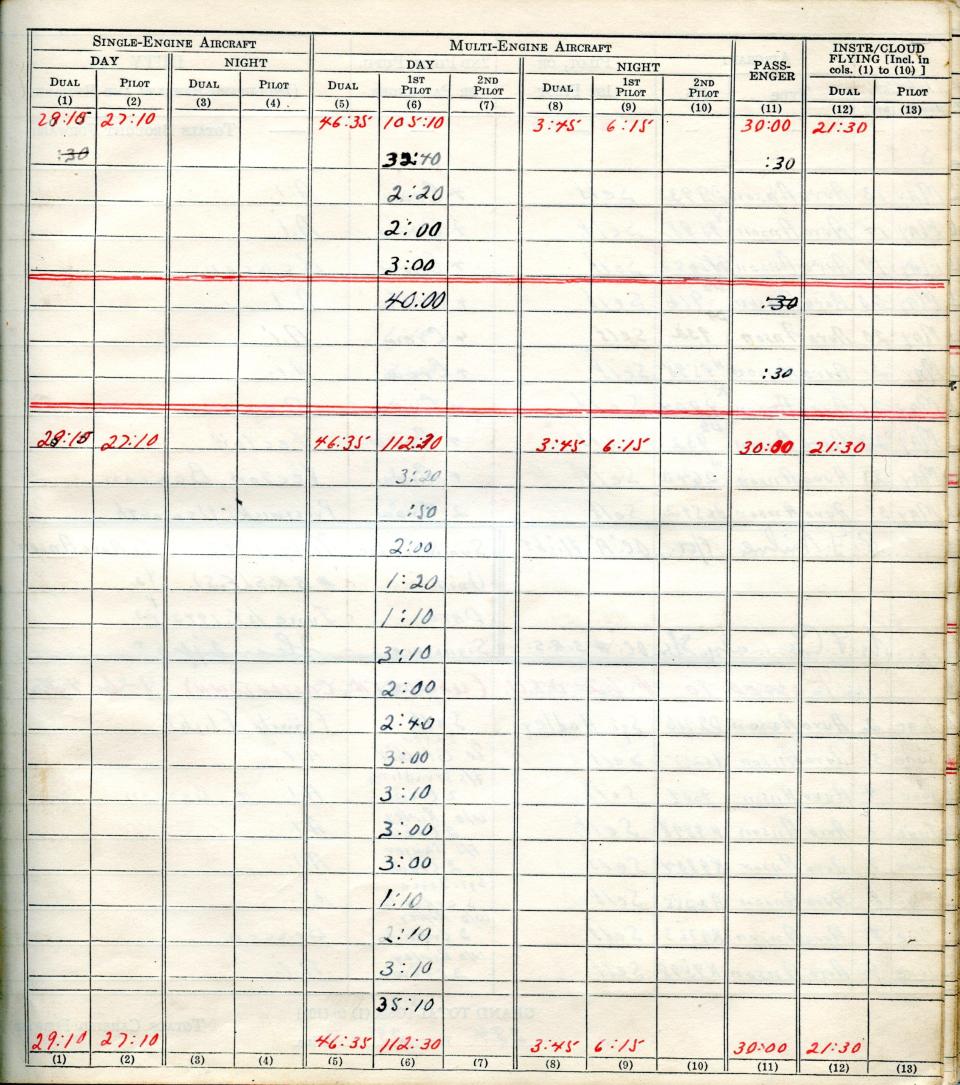 SINGLE-ENGINE AIRCRAFT MULTI-ENGINE AIRCRAFT PASS-ENGER INSTR/CLOUD FLYING [Incl. in cols. (1) to (10) ]
DAY NIGHT DAY NIGHT
DUAL PILOT DUAL PILOT DUAL 1ST PILOT 2ND PILOT DUAL 1ST PILOT 2ND PILOT DUAL PILOT
(1) (2) (3) (4) (5) (6) (7) (8) (9) (10) (11) (12) (13)
29:15 27:10 46:35 105:10 3:45 6:15 30:00 21:30
:30 32:40 :30
2:20
2:00
3:00
40:00 :30
:30
29:15 27:10 46:35 112:30 3:45 6:15 30:00 21:30
3:20
:50
2:00
1:20
1:10
3:10
2:00
2:40
3:00
3:10
3:00
3:00
1:10
2:10
3:10
35:10
29:10 27:10 46:35 112:30 3:45 6:15 30:00 21:30
(1) (2) (3) (4) (5) (6) (7) (8) (9) (10) (11) (12) (13)